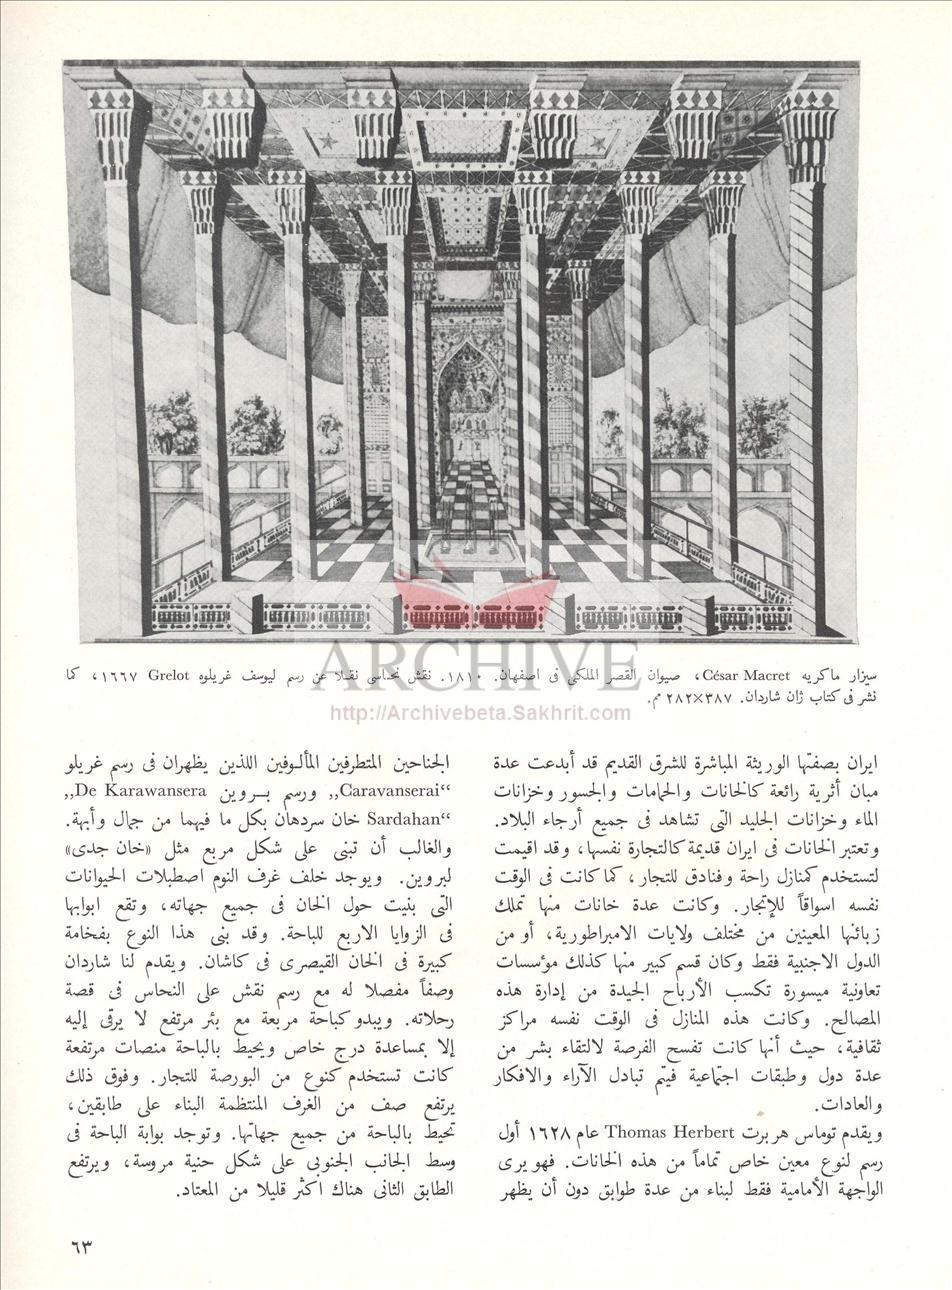 ARCHIVE
http://Archivebeta.Sakhrit.com
سيزار ماكريه César Macret، صيوان القصر الملكي فى اصفهان. ١٨١٠. نقش نحاسى نقلا عن رسم ليوسف غريلوه Grelot ١٦٦٧، كما
نشر فى كتاب ژان شاردان. ٣٨٧×٢٨٢ مم.
ايران بصفتها الوريثة المباشرة للشرق القديم قد أبدعت عدة
مبان أثرية رائعة كالخانات والحمامات والجسور وخزانات
الماء وخزانات الجليد التى تشاهد فى جميع أرجاء البلاد.
وتعتبر الخانات فى ايران قديمة كالتجارة نفسها، وقد اقيمت
لتستخدم كمنازل راحة وفنادق للتجار، كما كانت فى الوقت
نفسه اسواقاً للإتجار. وكانت عدة خانات منها تملك
زبائنها المعينين من مختلف ولايات الامبراطورية، أو من
الدول الاجنبية فقط وكان قسم كبير منها كذلك مؤسسات
تعاونية ميسورة تكسب الأرباح الجيدة من إدارة هذه
المصالح. وكانت هذه المنازل فى الوقت نفسه مراكز
ثقافية، حيث أنها كانت تفسح الفرصة لالتقاء بشر من
عدة دول وطبقات اجتماعية فيتم تبادل الآراء والافكار
والعادات.
ويقدم توماس هربرت Thomas Herbert عام ١٦٢٨ أول
رسم لنوع معين خاص تماماً من هذه الخانات. فهو يرى
الواجهة الأمامية فقط لبناء من عدة طوابق دون أن يظهر
الجناحين المتطرفين المألوفين اللذين يظهران فى رسم غريلو
„Caravanserai“ ورسم بروين „De Karawansera
Sardahan“ خان سردهان بكل ما فيهما من جمال وأبهة.
والغالب أن تبنى على شكل مربع مثل «خان جدى»
لبروين. ويوجد خلف غرف النوم اصطبلات الحيوانات
التى بنيت حول الخان فى جميع جهاته، وتقع ابوابها
فى الزوايا الاربع للباحة. وقد بنى هذا النوع بفخامة
كبيرة فى الخان القيصرى فى كاشان. ويقدم لنا شاردان
وصفاً مفصلا له مع رسم نقش على النحاس فى قصة
رحلاته. ويبدو كباحة مربعة مع بئر مرتفع لا يرقى إليه
إلا بمساعدة درج خاص ويحيط بالباحة منصات مرتفعة
كانت تستخدم كنوع من البورصة للتجار. وفوق ذلك
يرتفع صف من الغرف المنتظمة البناء على طابقين،
تحيط بالباحة من جميع جهاتها. وتوجد بوابة الباحة فى
وسط الجانب الجنوبى على شكل حنية مروسة، ويرتفع
الطابق الثانى هناك اكثر قليلا من المعتاد.
٦٣